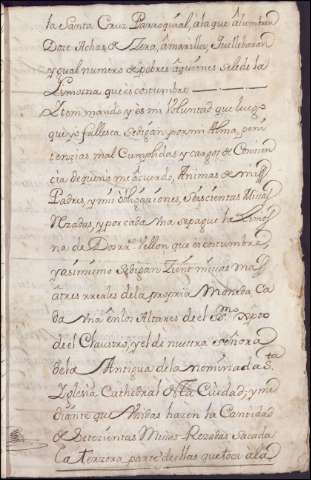 la Santa Cruz Parroquial, a la que alumbran
Doze Achas, de Zera, amarilla, q.e llebaran
y gual numero de pobres a quienes se les de la
Lymosna que es costumbre
Ytem mando y es mi Voluntad que luego
que yo fallesca, se digan por mi Alma, peni
tenzias mal Cumplidas y cargos de Conzien
cia de que no me acuerdo, Animas de mis
Padres, y mis obligaziones, Seiscientas Misas
Rezadas, y por cada Una se pague la Limos
na de Dos rr.s Vellon que es costumbre,
y asimismo se digan Zient misas mas
a tres rreales de la propria Moneda ca
da Una en los Altares de el S.mo xpto
de el Claustro, y el de nuestra señora
de la Antigua de la nominada S.ta
Yglesia Cathedral de esta Ciudad; y me
diante que Unidas hazen la Cantidad
de Setezientas Misas Rezadas Sacada
la terzera parte de ellas que toca a la